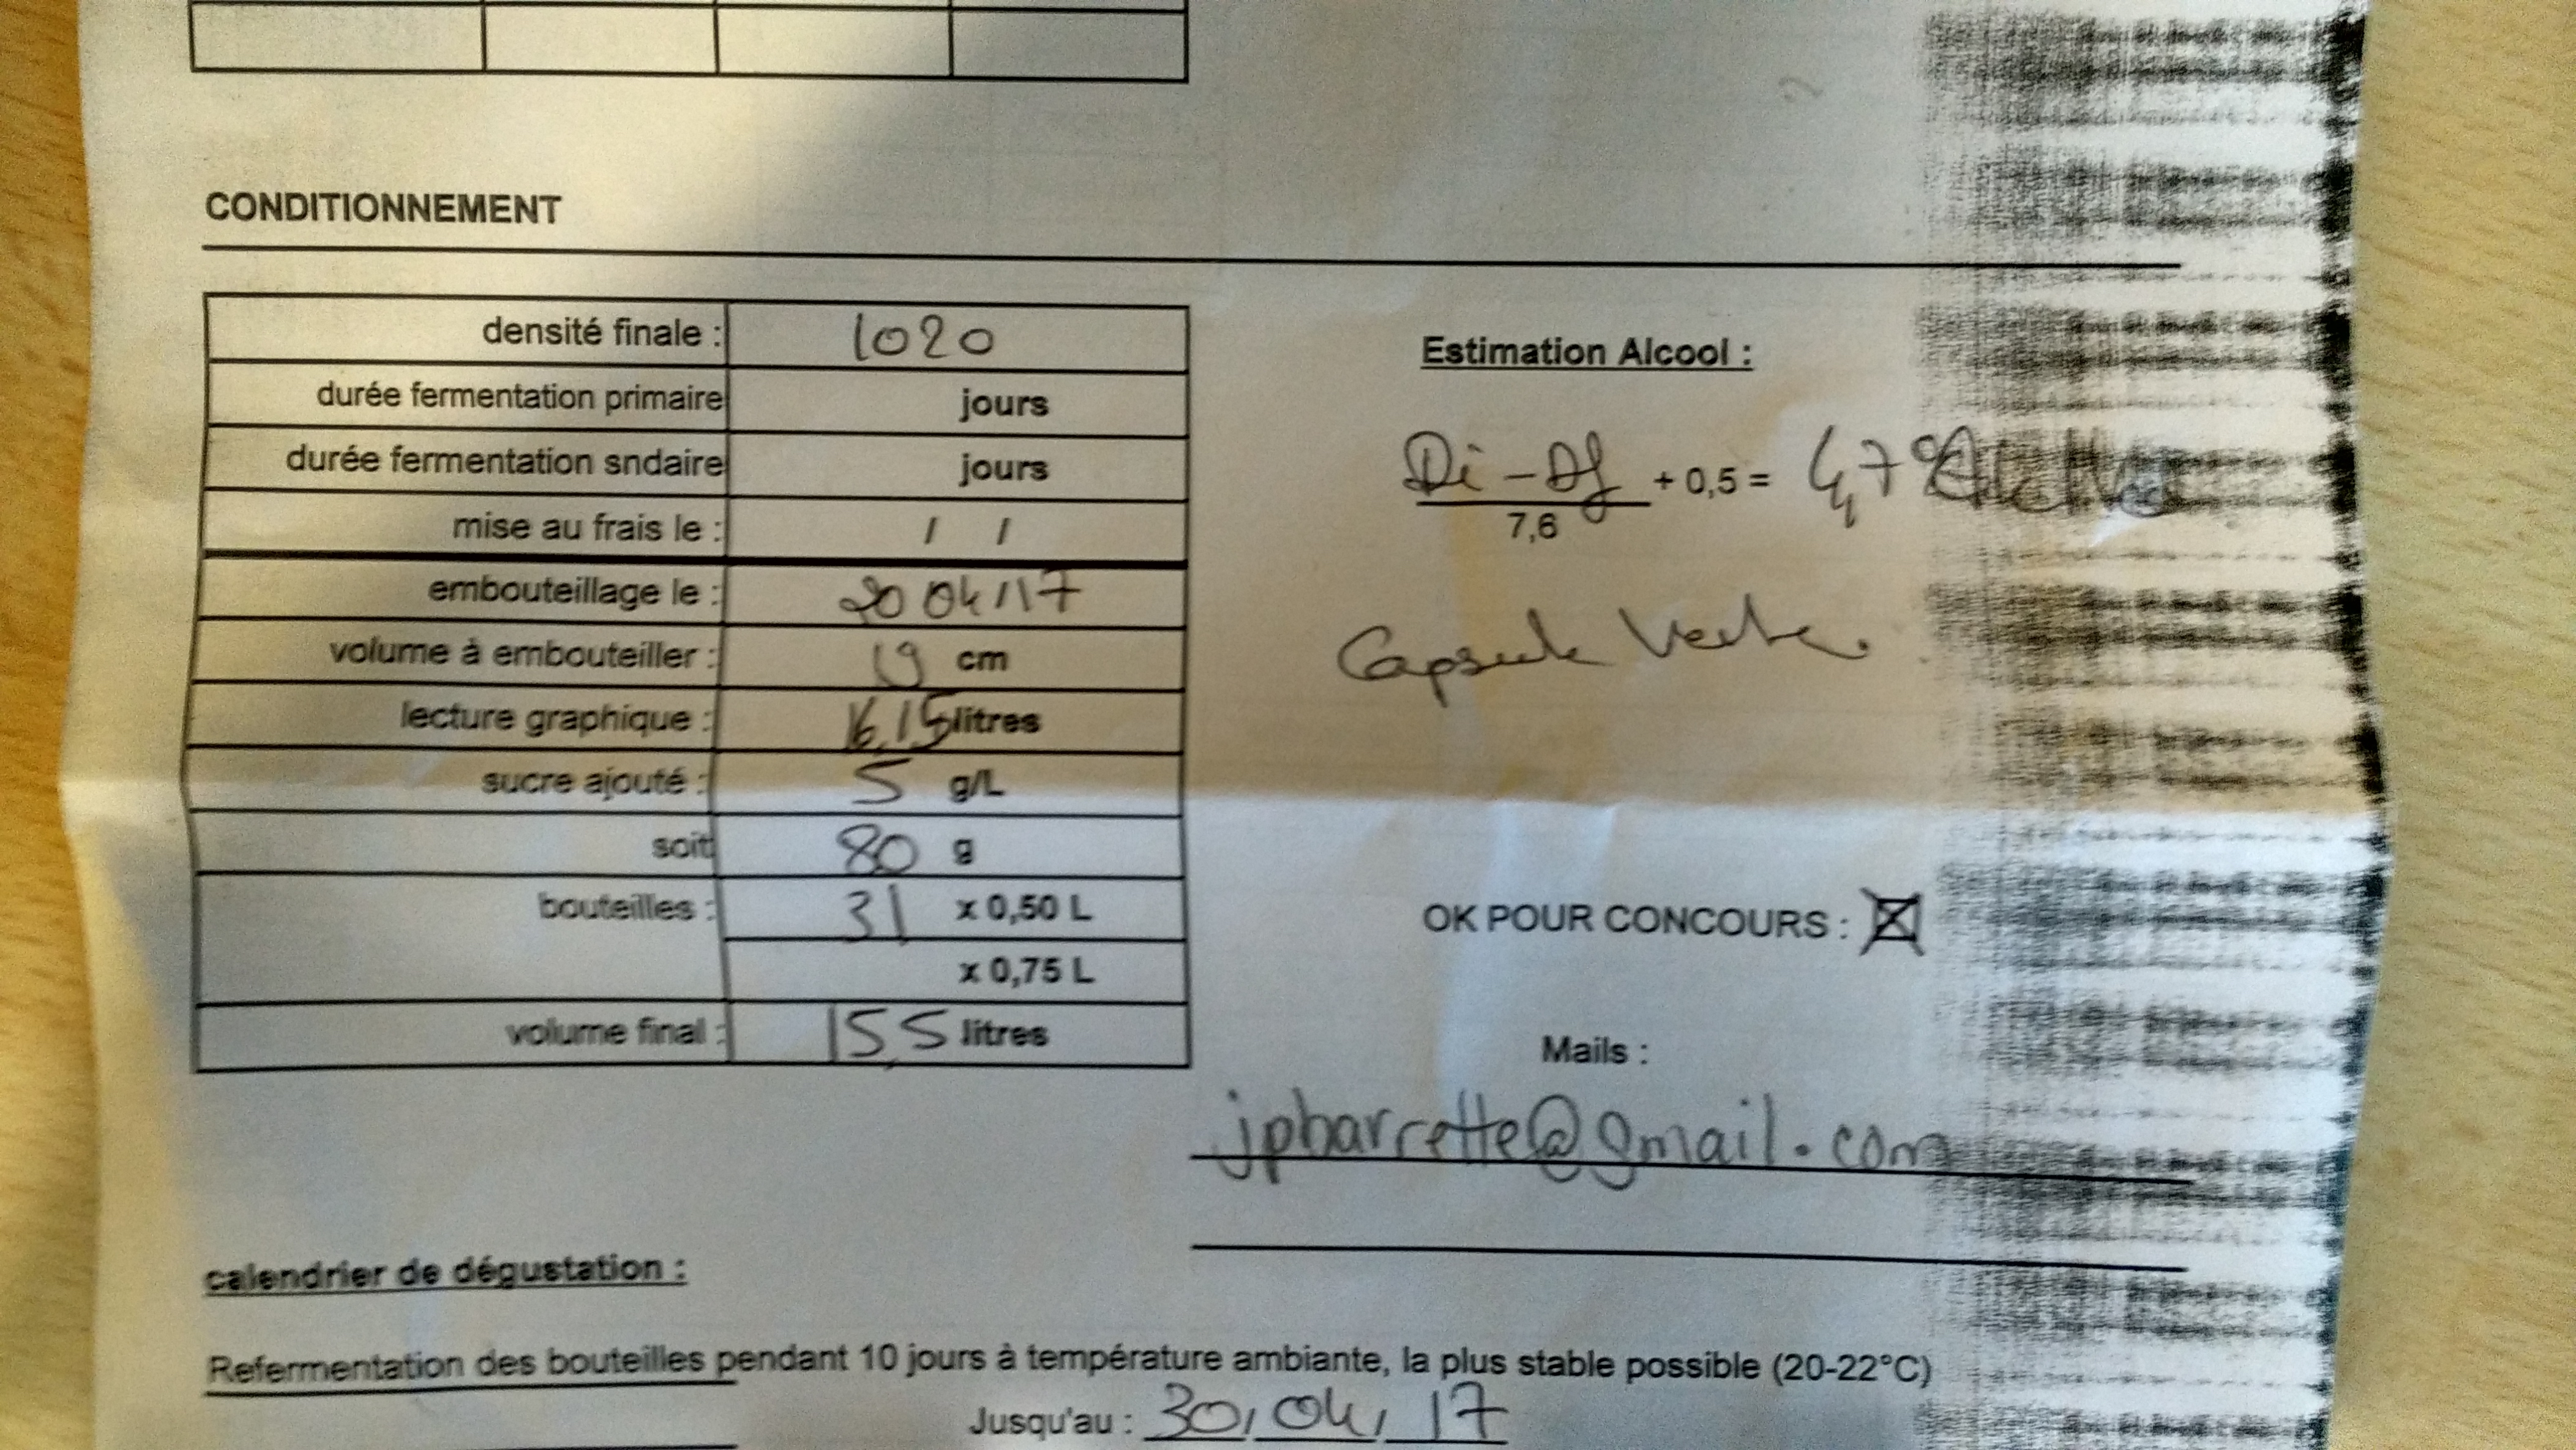 CONDITIONNEMENT
densité finale : 1020
durée fermentation primaire jours
durée fermentation sndaire jours
mise au frais le : / /
embouteillage le : 20 04 / 17
volume à embouteiller : 19 cm
lecture graphique : 16,15 litres
sucre ajouté : 5 g/L
soit 80 g
bouteilles : 31 x 0,50 L
x 0,75 L
volume final : 15,5 litres
Estimation Alcool :
Di - Df
7,6
+ 0,5 = 4,7%
Capsule Verte.
OK POUR CONCOURS :
Mails :
jpbarrette@gmail.com
calendrier de dégustation :
Refermentation des bouteilles pendant 10 jours à température ambiante, la plus stable possible (20-22°C)
Jusqu'au : 30 / 04 / 17